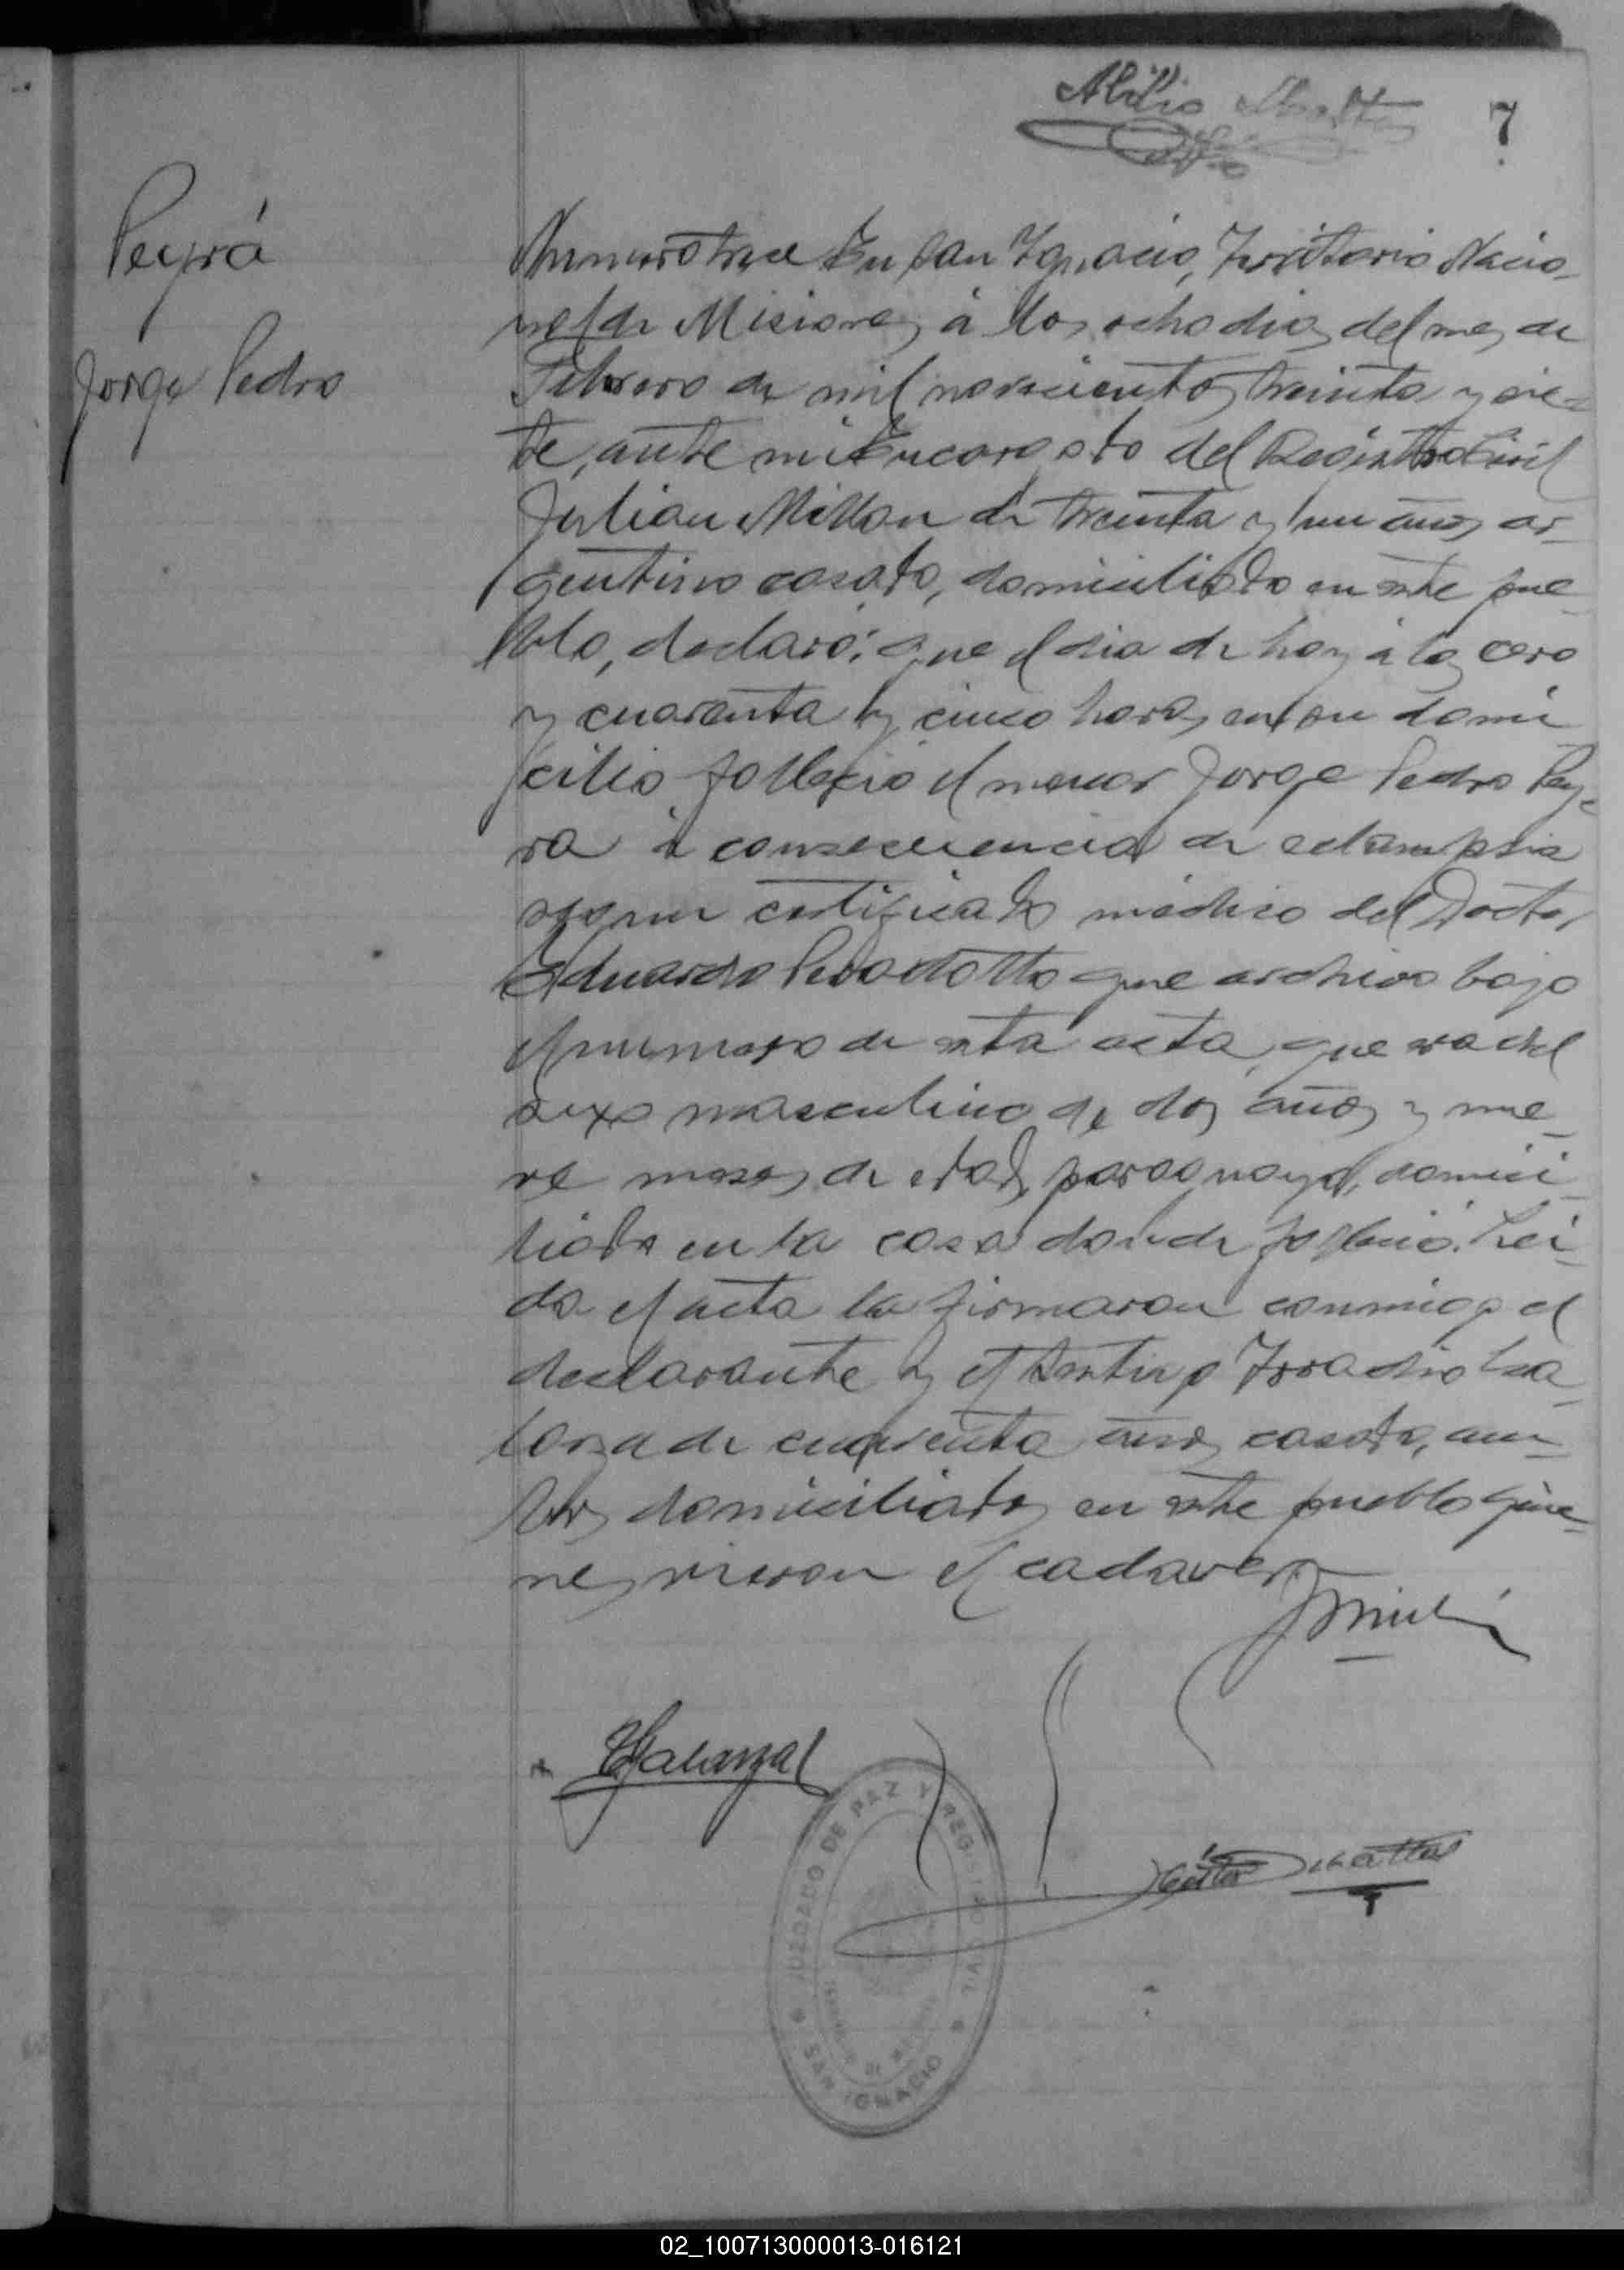 Abilio
7
Peyrá
Jorge Pedro
Numero trece En San Ygnacio, Territorio Nacio_
nal de Misiones á los ocho dias del mes de
Febrero de mil novecientos treinta y sie_
te, ante mi Encargado del Registro Civil
Julian Millan de treinta y un años ar_
gentino casado, domiciliado en este pue_
blo, declaró: que el dia de hoy á las cero
y cuarenta y cinco horas en su domi
cilio fallecio el menor Jorge Pedro Pey_
ra á consecuencia de eclampsia
segun certificado médico del Doctor
Eduardo que archivo bajo
el numero de esta acta, que era del
sexo masculino de dos años y nue_
ve meses de edad, paraguayo, domici_
liado en la casa donde falleció. Lei_
da el acta la firmaron conmigo el
declarante y el testigo
de cuarenta años casado, am_
bos domiciliados en este pueblo quie_
nes vieron el cadaver
JUZGADO DE PAZ Y REGISTRO CIVIL
SAN IGNACIO
02_100713000013-016121